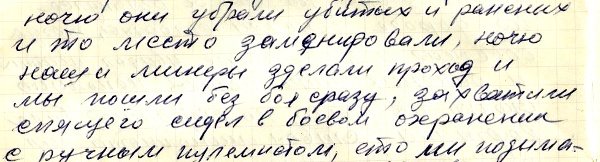 ночю они убрали убитых и ранених
и то место заминировали, ночю
наши минеры зделали проход и
мы пошли без боя сразу, захватили
спящего сидел в боевом охранении
с ручным пулемиотом, ето ми позима-